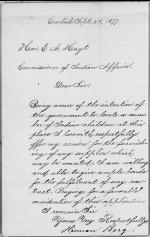 Carlisle Sept. 29, 1879.
Hon. E. A. Hayt
Commissioner of Indian Affairs.
Dear Sir:
Being aware of the intention of
the government to locate a num-
ber of Indian children at this
place I would respectfully
offer my services for the furnish-
ing of any supplies which
may be wanted. I am willing
and able to give ample bonds
for the fulfillment of any con-
tract. Praying for favorable
consideration of this application
I remain Sir
Yours Very Respectfully
Herman Berg.